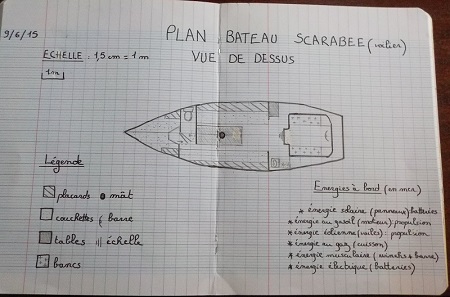 9/6/15
PLAN BATEAU SCARABEE (voilier)
ECHELLE : 1,5 cm = 1 m
VUE DE DESSUS
1 m
Légende
placards mât
couchettes barre
tables échelle
bancs
Energies à bord (en mer)
* énergie solaire (panneaux) batteries
* énergie au gasoil (moteur) propulsion
* énergie éolienne (voiles) : propulsion
* énergie au gaz (cuisson)
* énergie musculaire (winchs + barre)
* énergie électrique (batteries)